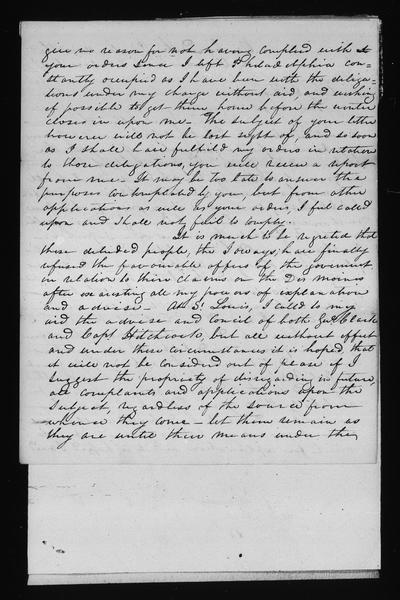 give no reason for not having complied with it
your orders since I left Philadelphia con-
stantly occupied as I have been with the delega-
tions under my charge without aid, and wishing
if possible to get them home before the winter
closes in upon me - The subject of your letter
however will not be lost sight of, and so soon
as I shall have fulfild my orders in relation
to those delegations, you will receive a report
from me - It may be too late to answer the
purposes contemplated by you, but from other
applications as well as your orders, I feel called
upon and shall not fail to comply -
It is much to be regretted that
these deluded people, the Ioways, have finally
refused the favourable offers of the government
in relation to their claims on the Des moines
after exausting all my powers of explanation
and advise - At St Louis, I called to my
aid the advise and council of both Genl Clark
and Capt Hitchcock, but all without effect
and under these circumstances it is hoped, that
it will not be considered out of place if I
suggest the propriety of disregarding in future,
all complaints and applications upon the
subject, regardless of the source from
whence they come - let them remain as
they are until their means under the